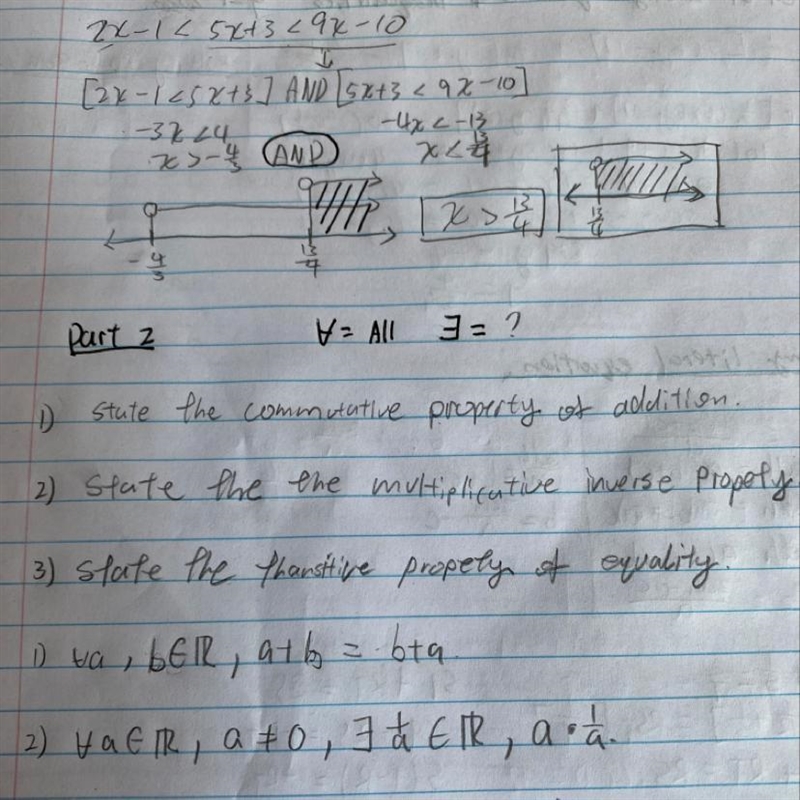 2x-1 < 5x+3 < 9x-10
[2x-1<5x+3] AND [5x+3 < 9x-10]
-3x<4 -4x < -13
x > -4/3 AND x < 13/4
x > 13/4
-4/3 13/4 13/4
Part 2 ∀ = All ∃ = ?
1) state the commutative property of addition.
2) state the the multiplicative inverse Propety
3) state the thansitive propety of equality.
1) ∀a, b∈ℝ, a+b = b+a.
2) ∀a∈ℝ, a≠0, ∃ 1/a ∈ℝ, a·1/a.